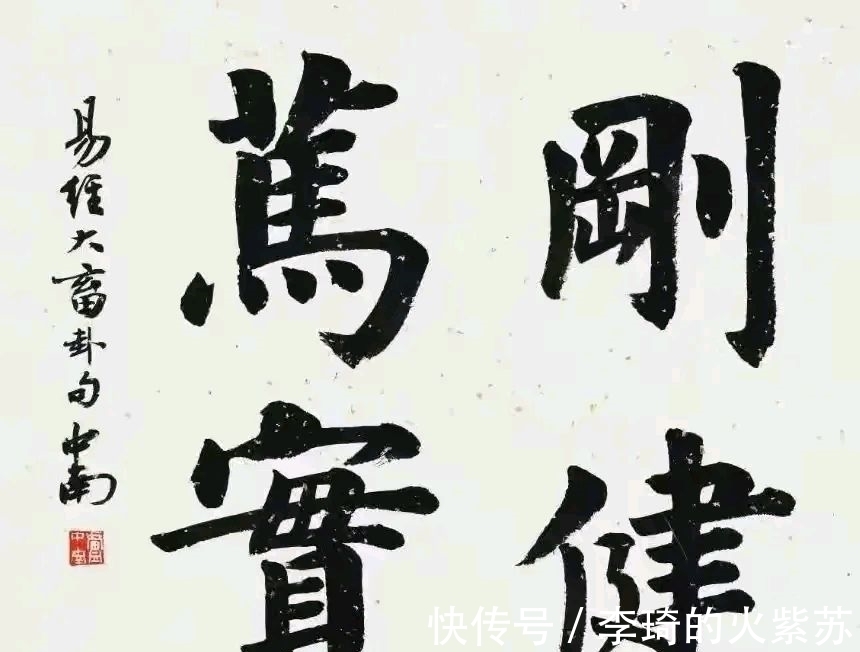 剛健
篤實
易經大畜卦句 中南
快传号 / 李琦的火紫苏